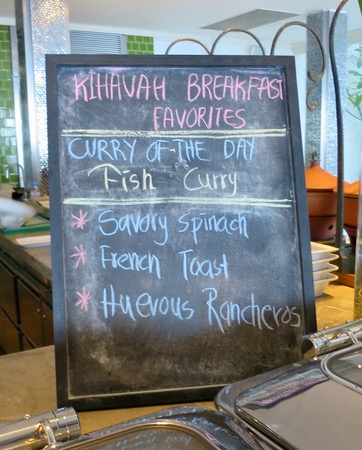 KIHAVAH BREAKFAST
FAVORITES
CURRY OF THE DAY
Fish Curry
* Savory Spinach
* French Toast
* Huevous Rancheros